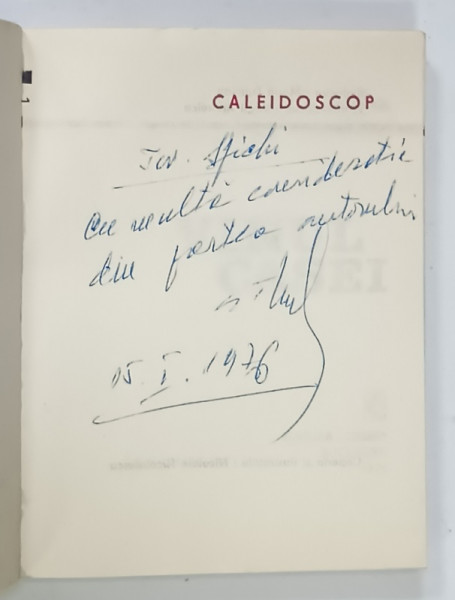 CALEIDOSCOP
Tov.
Cu multă considerație
din partea autorului
15. I. 1976